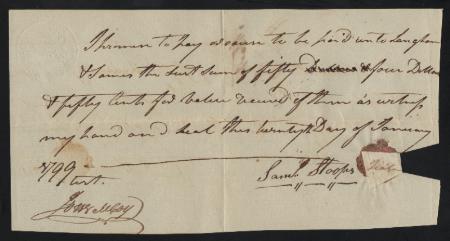 I promise to pay or cause to be paid unto Langham
& James the Just Sum of fifty four Dollars
& fifty Cents for Value received of them as witness
my hand and Seal this twentyth Day of January
1799
test.
Saml. Stoops
Seal